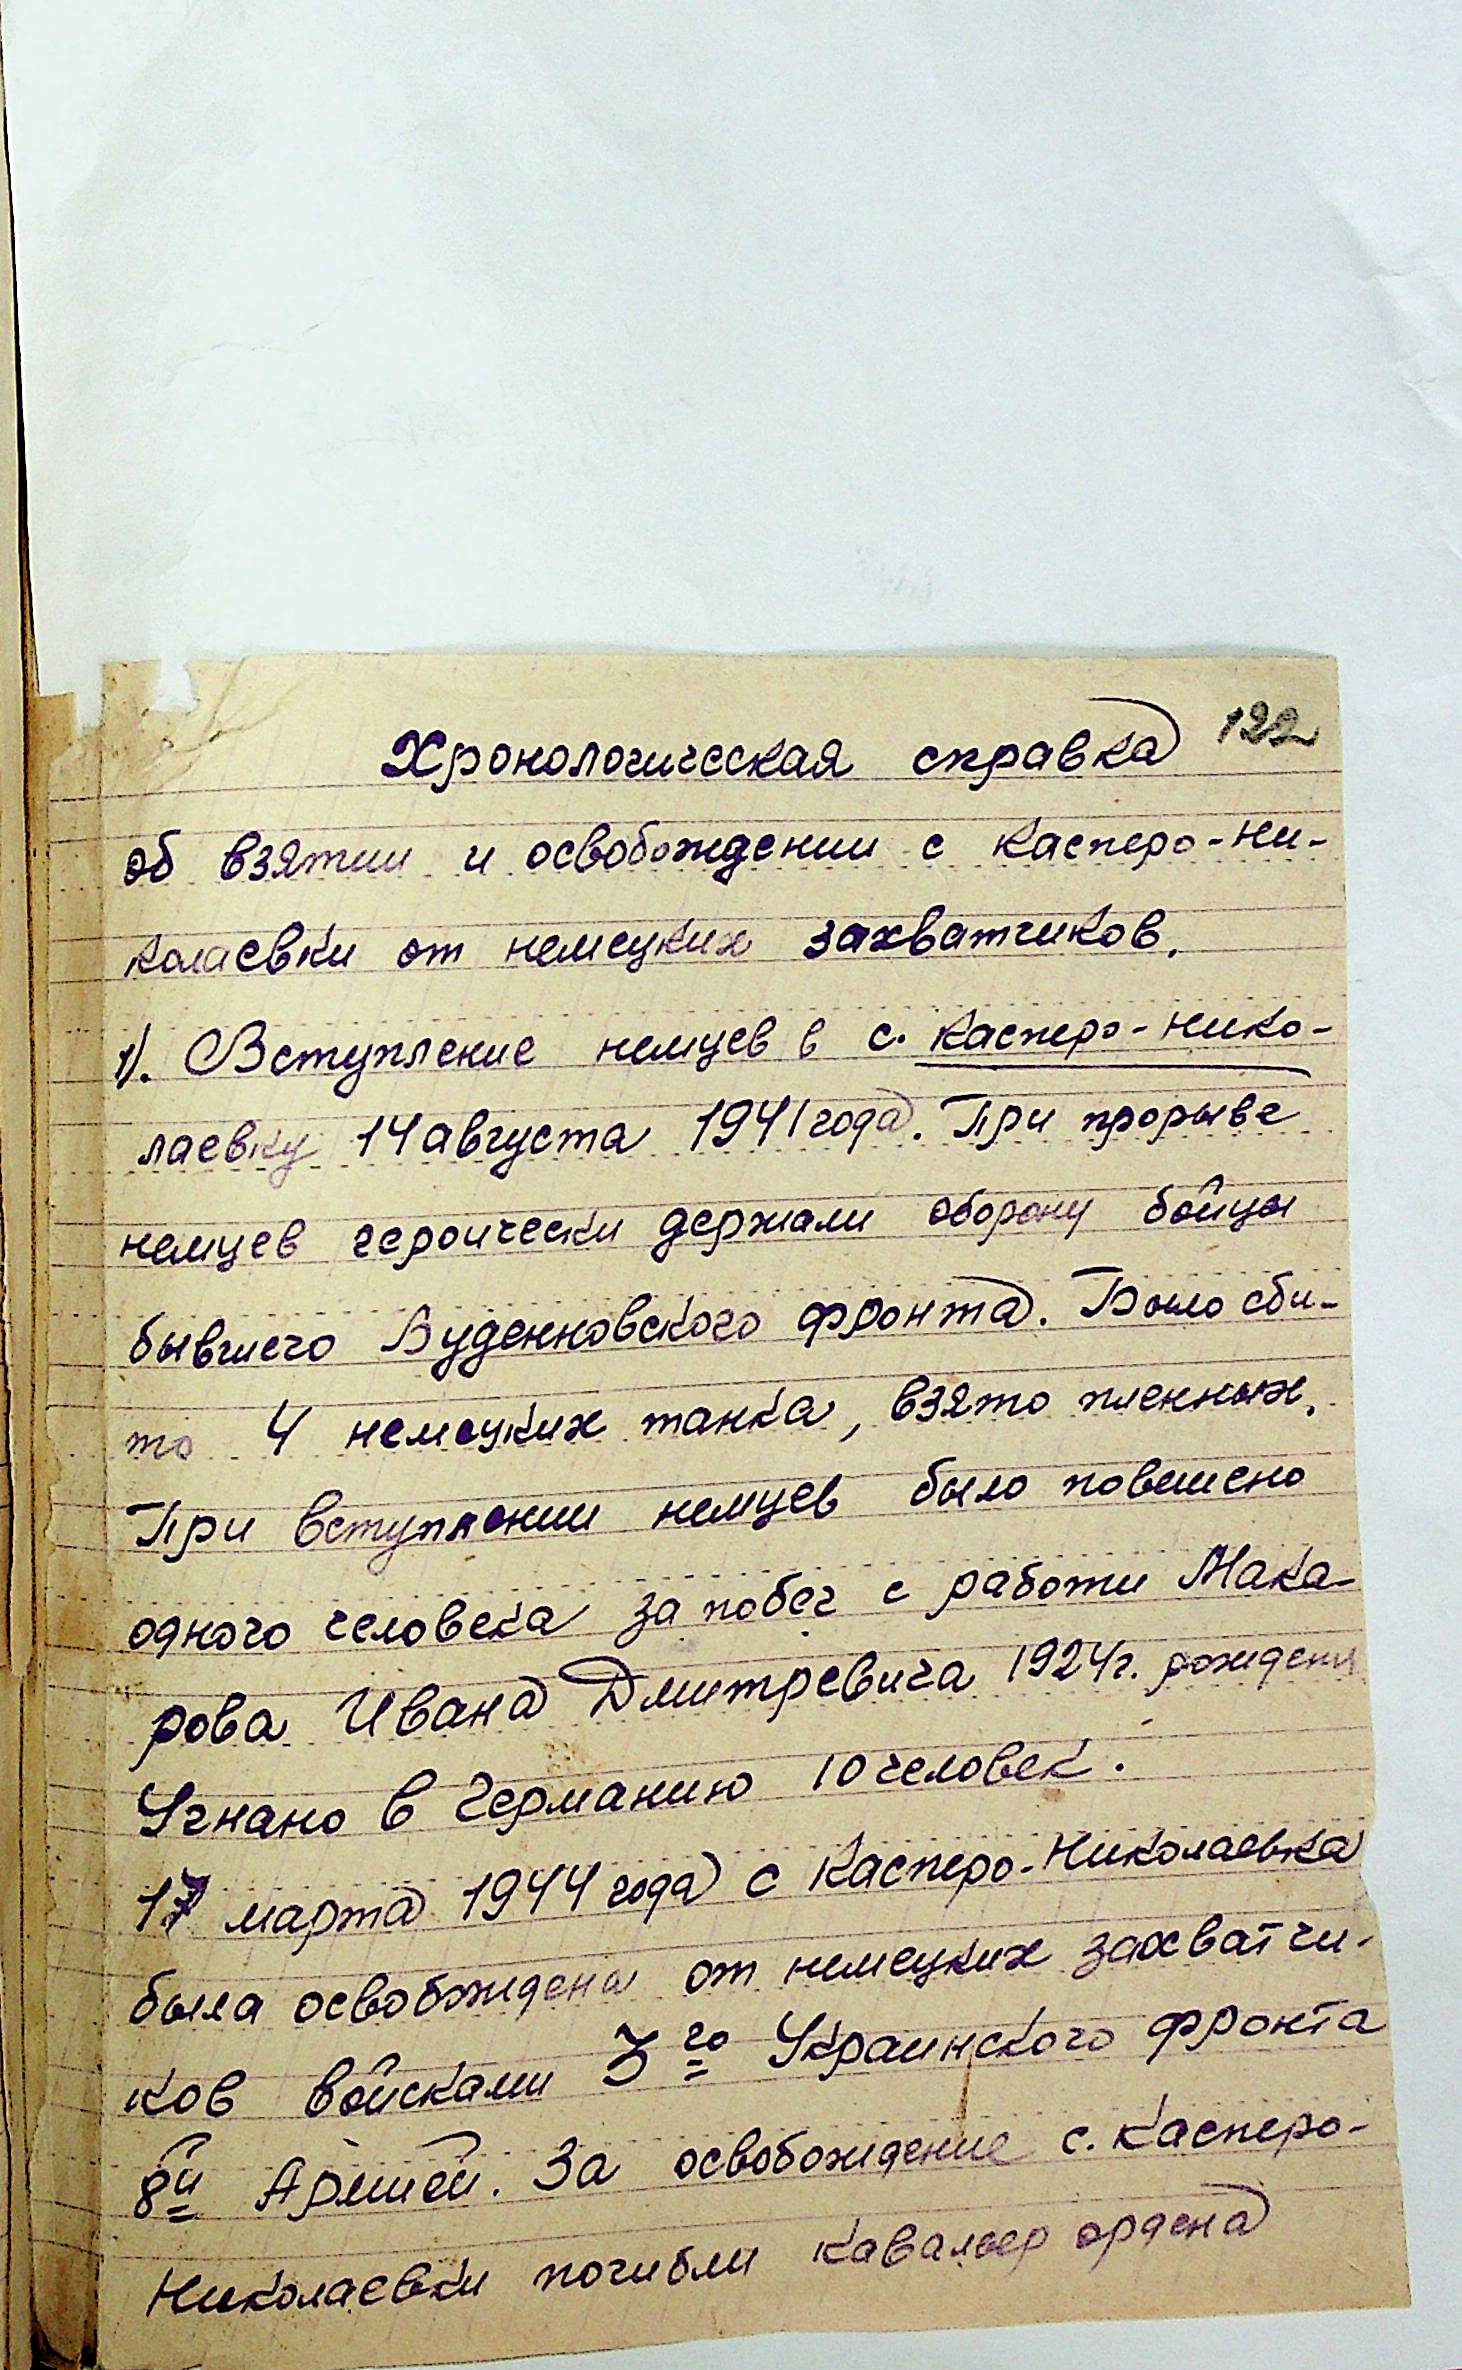 122
Хронологическая справка
об взятии и освобождении с Касперо-Ни-
колаевки от немецких захватчиков.
1). Вступление немцев в с. Касперо-Нико-
лаевку 14 августа 1941 года. При прорыве
немцев героически держали оборону бойцы
бывшего Буденновского фронта. Было сби-
то 4 немецких танка, взято пленных.
При вступлении немцев было повешено
одного человека за побег с работи Мака-
рова Ивана Дмитревича 1924г. рождения
Угнано в Германию 10 человек.
17 марта 1944 года с Касперо-Николаевка
была освобождена от немецких захватчи-
ков войсками 3го Украинского фронта
8й Армией. За освобождение с. Касперо-
Николаевки погибли кавальер ордена